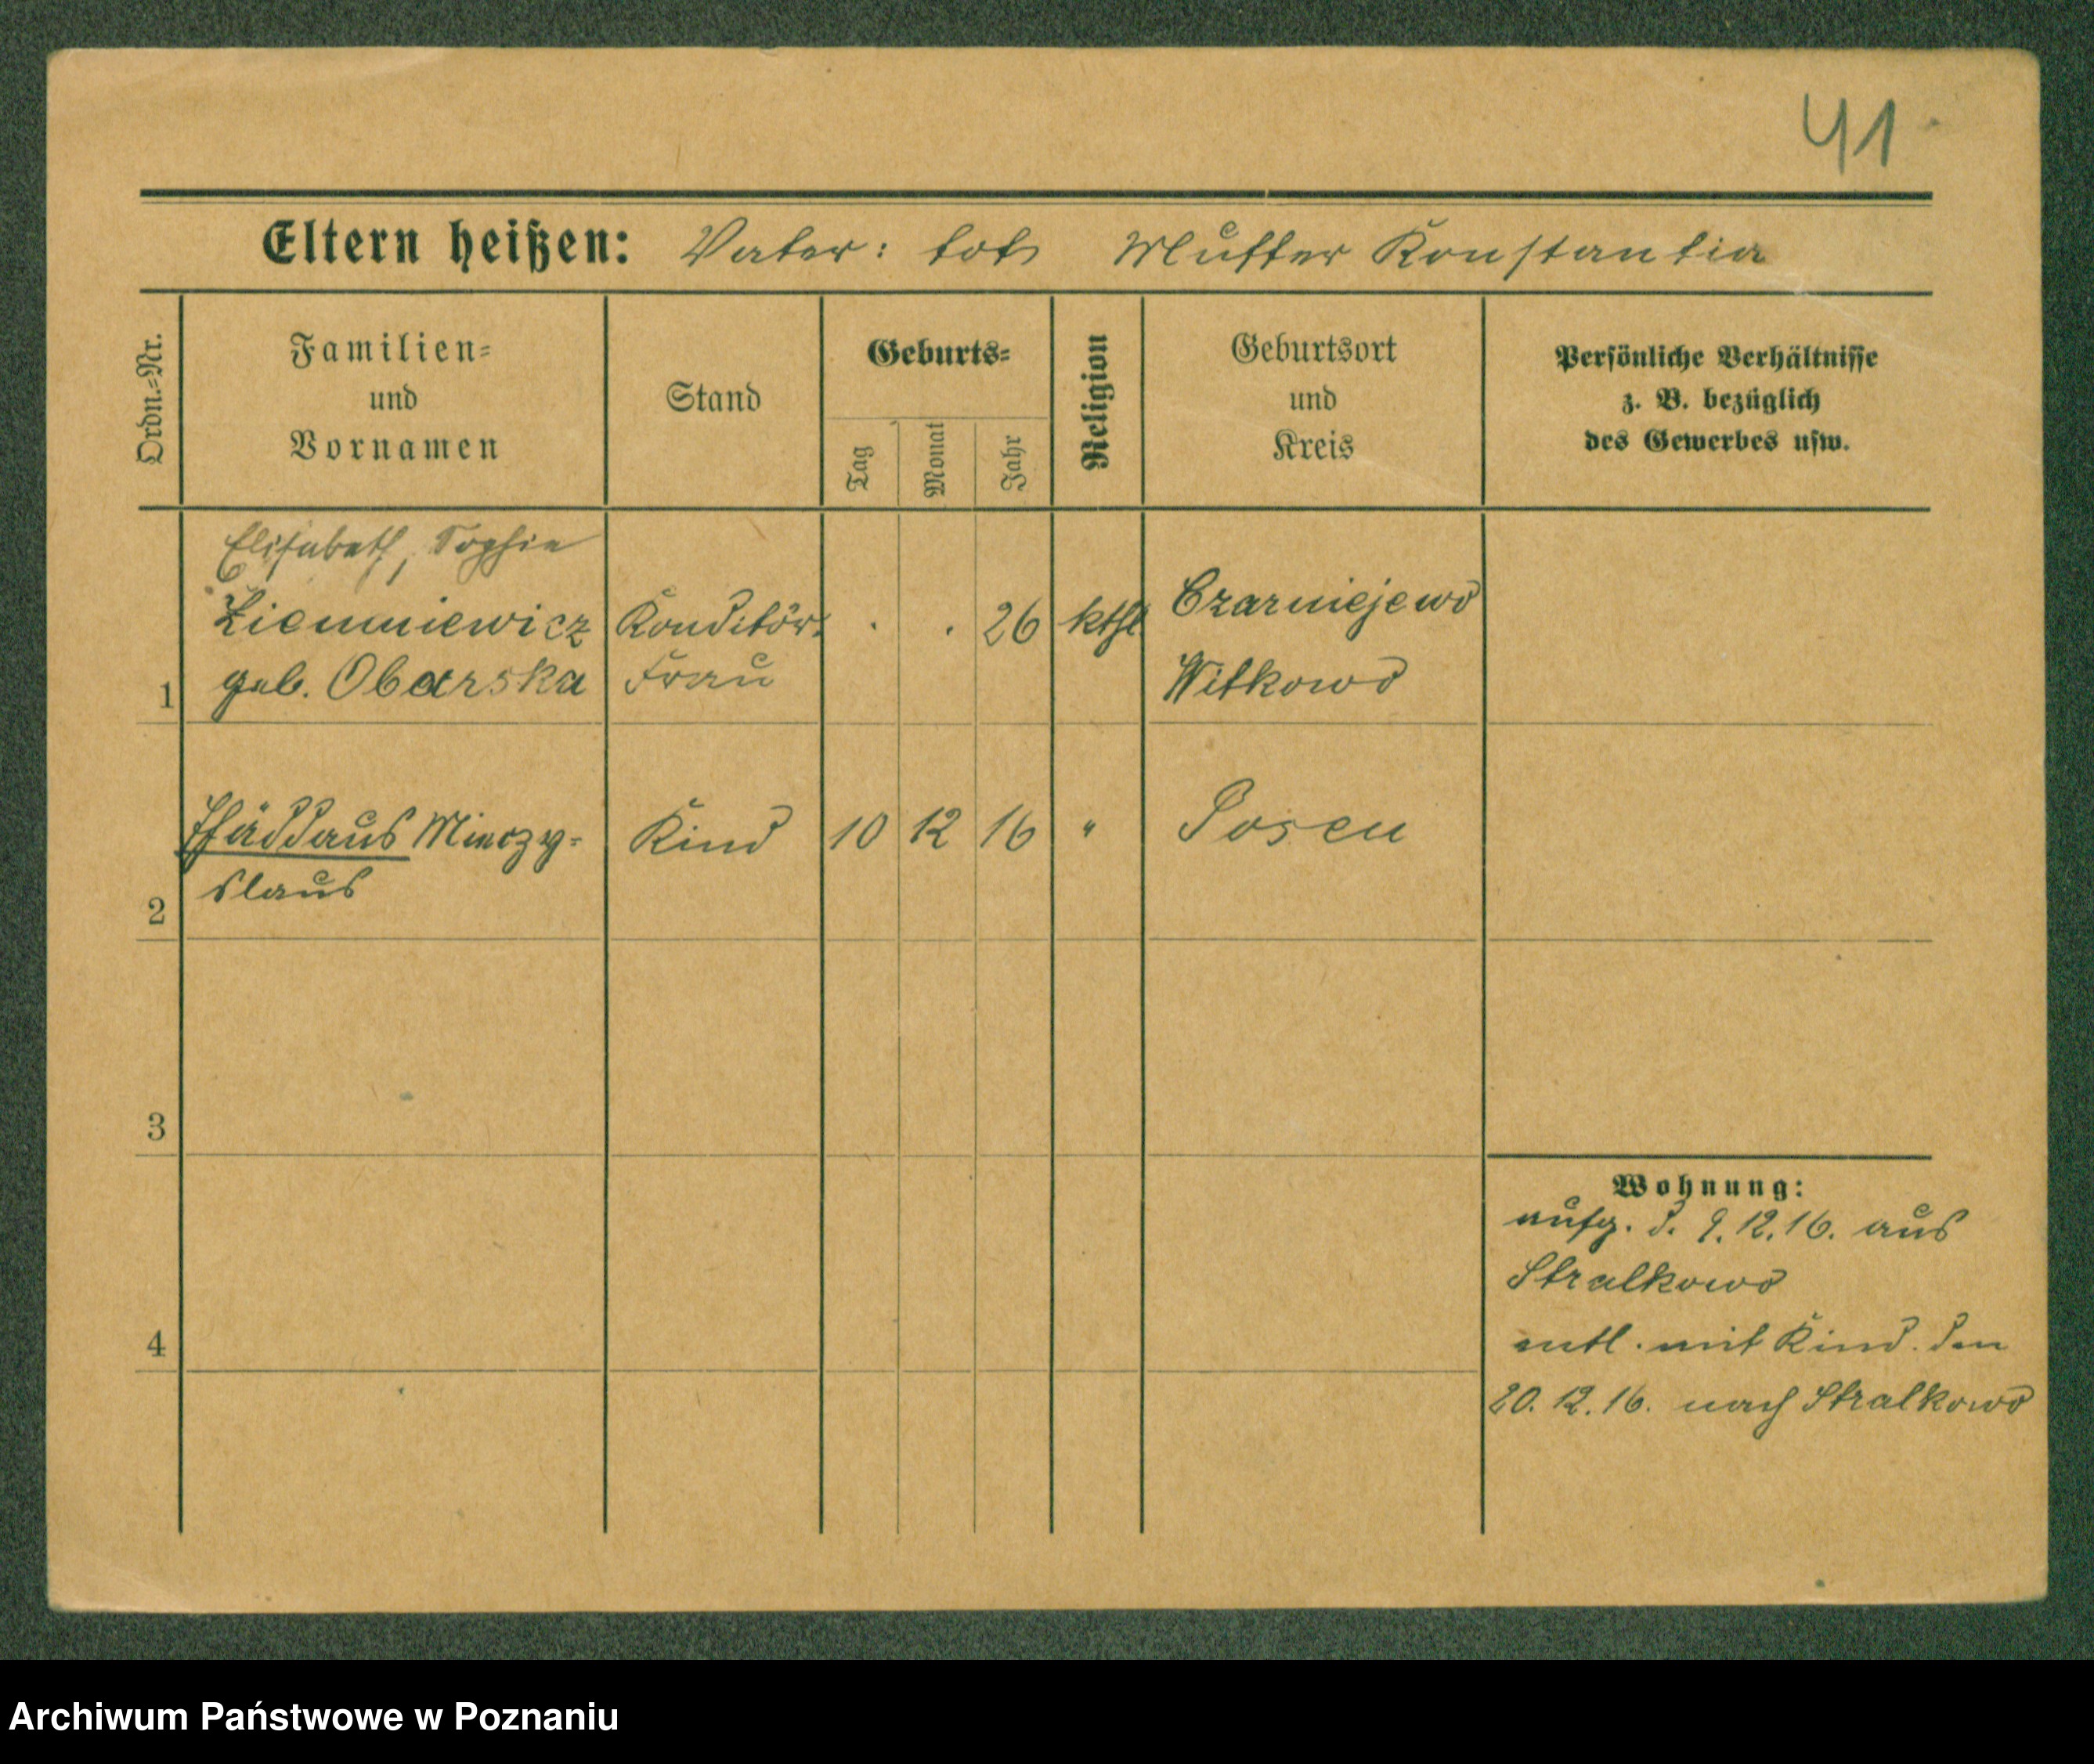 41
Eltern heißen: Vater: tot Mutter Konstantia
Ordn.-Nr.
Familien-
und
Vornamen
Stand
Geburts-
Tag
Monat
Jahr
Religion
Geburtsort
und
Kreis
Persönliche Verhältnisse
z. B. bezüglich
des Gewerbes usw.
Elisabeth, Sophie
Ziemniewicz
geb. Obarska
Konditor
Frau
26
kthl
Czarniejewo
Witkowo
1
Thäddaus Mieczy-
slaus
Kind
10
12
16
"
Posen
2
3
4
Wohnung:
aufg. d. 9.12.16. aus
Stralkowo
entl. mit Kind. den
20.12.16. nach Stralkowo
Archiwum Państwowe w Poznaniu